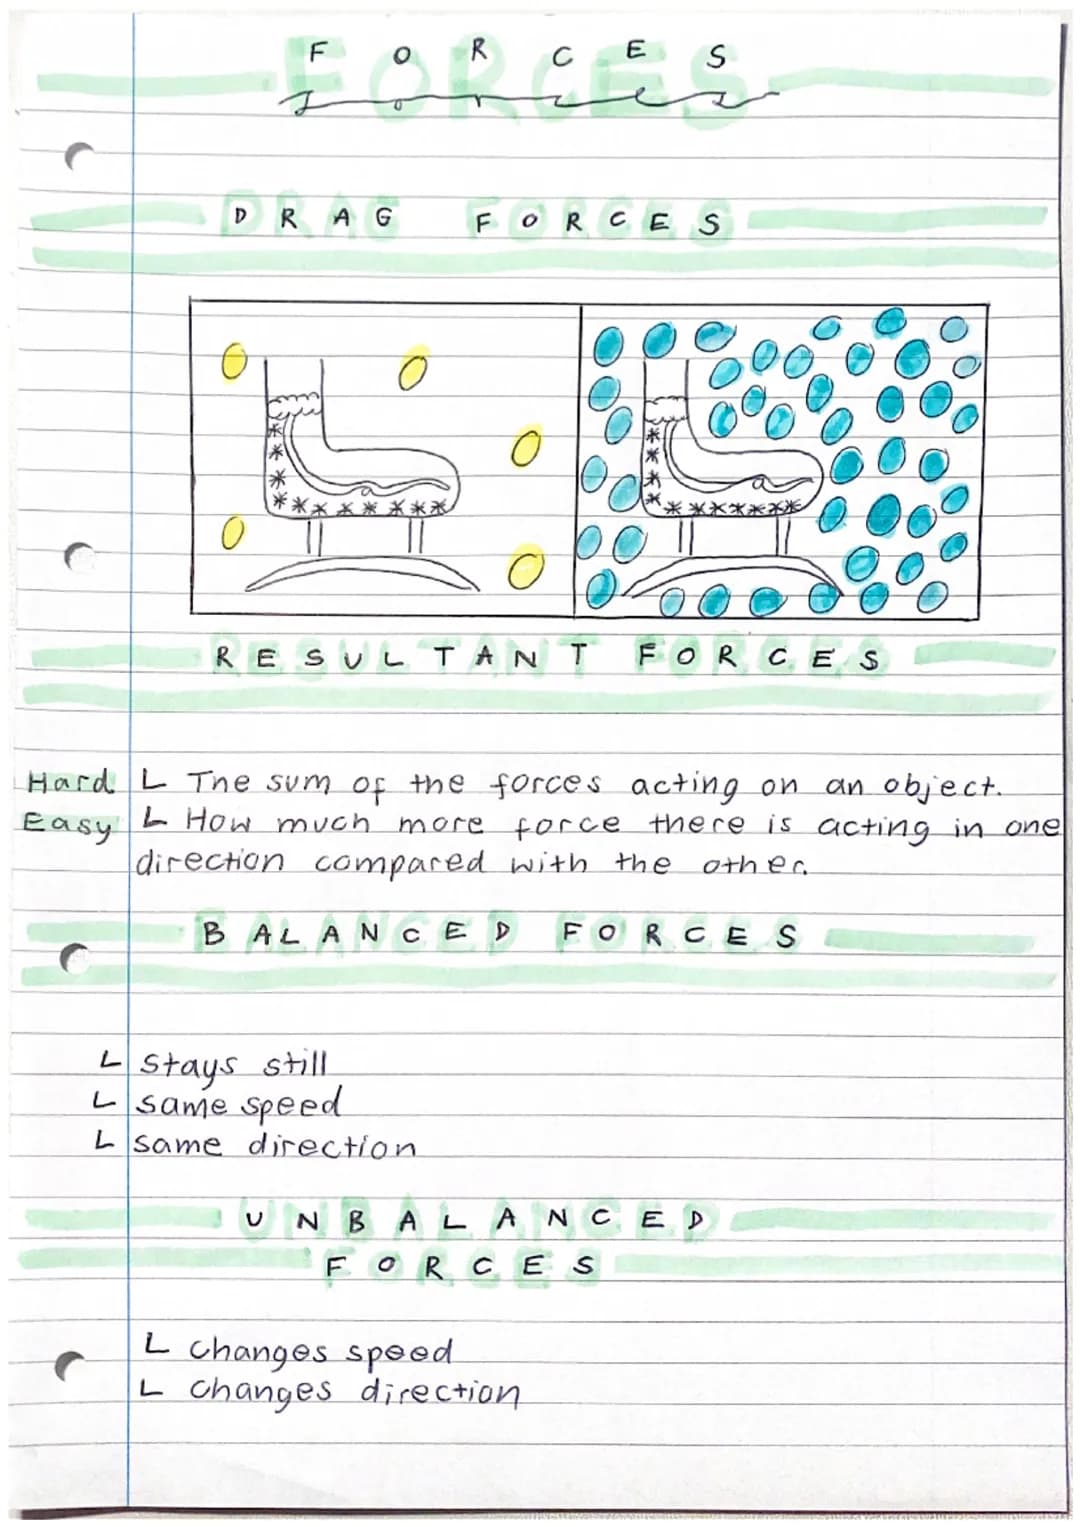 FORCES
forces
DRAG FORCES
RESULTANT FORCES
Hard ∟ The sum of the forces acting on an object.
Easy ∟ How much more force there is acting in one
direction compared with the other.
BALANCED FORCES
∟ stays still
∟ same speed
∟ same direction
UNBALANCED
FORCES
∟ changes speed
∟ changes direction